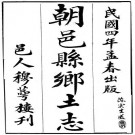 民國四年孟春出版
朝邑縣鄉土志
邑人穆夢樓刊